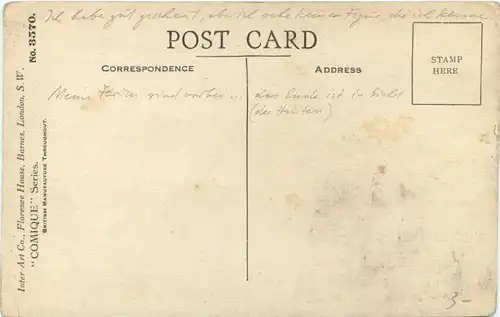 Ich habe gut gesehen, aber ich sehe keine Figur, die ich kenne.
POST CARD
CORRESPONDENCE
ADDRESS
STAMP
HERE
Meine Ferien sind vorbei ...
das Ende ist in Sicht
(der Hintern)
No. 3570.
"COMIQUE" Series.
BRITISH MANUFACTURE THROUGHOUT.
Inter-Art Co., Florence House, Barnes, London, S.W.
3-